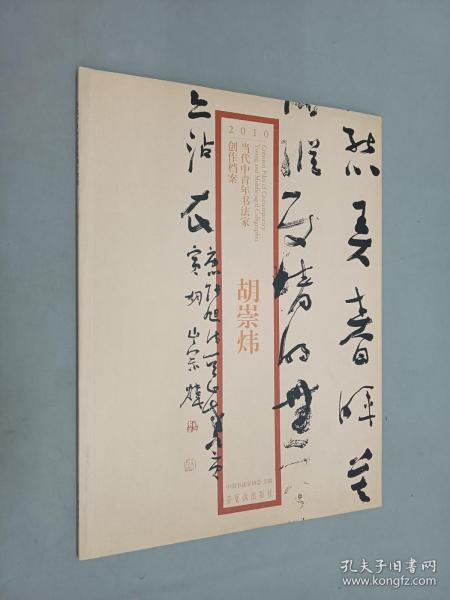 态弄春晖莫
纵使晴明无
沾衣
2010
当代中青年书法家
创作档案
Creation Files of Contemporary
Young and Middle-aged Calligrapher
胡崇炜
中国书法家协会·主编
荣宝斋出版社
孔夫子旧书网
www.kongfz.com